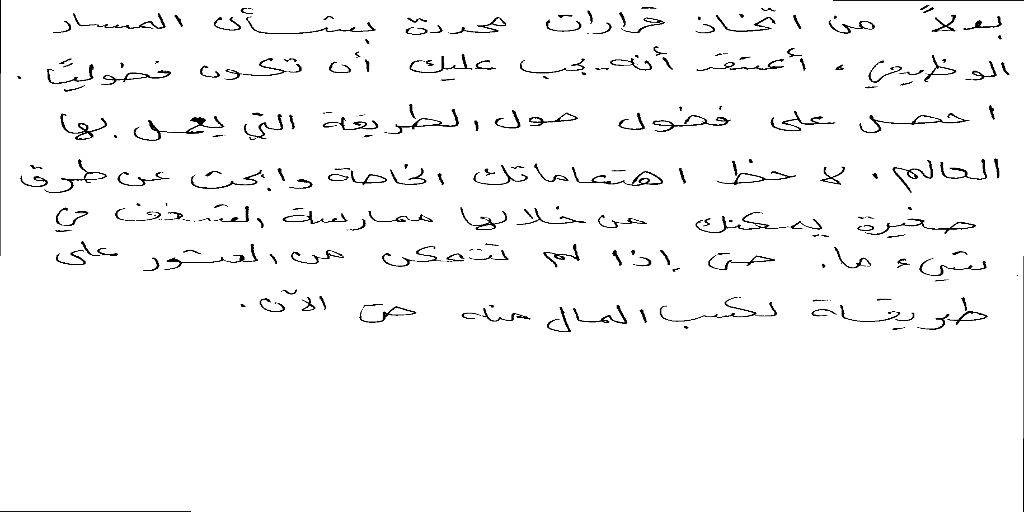 بدلاً من اتخاذ قرارات محددة بشأن المسار
الوظيفي ، أعتقد أنه يجب عليك أن تكون فضوليًا .
احصل على فضول حول الطريقة التي يعمل بها
العالم . لاحظ اهتماماتك الخاصة وابحث عن طرق
صغيرة يمكنك من خلالها ممارسة الشغف في
شيء ما . حتى إذا لم تتمكن من العثور على
طريقة لكسب المال منه حتى الآن .